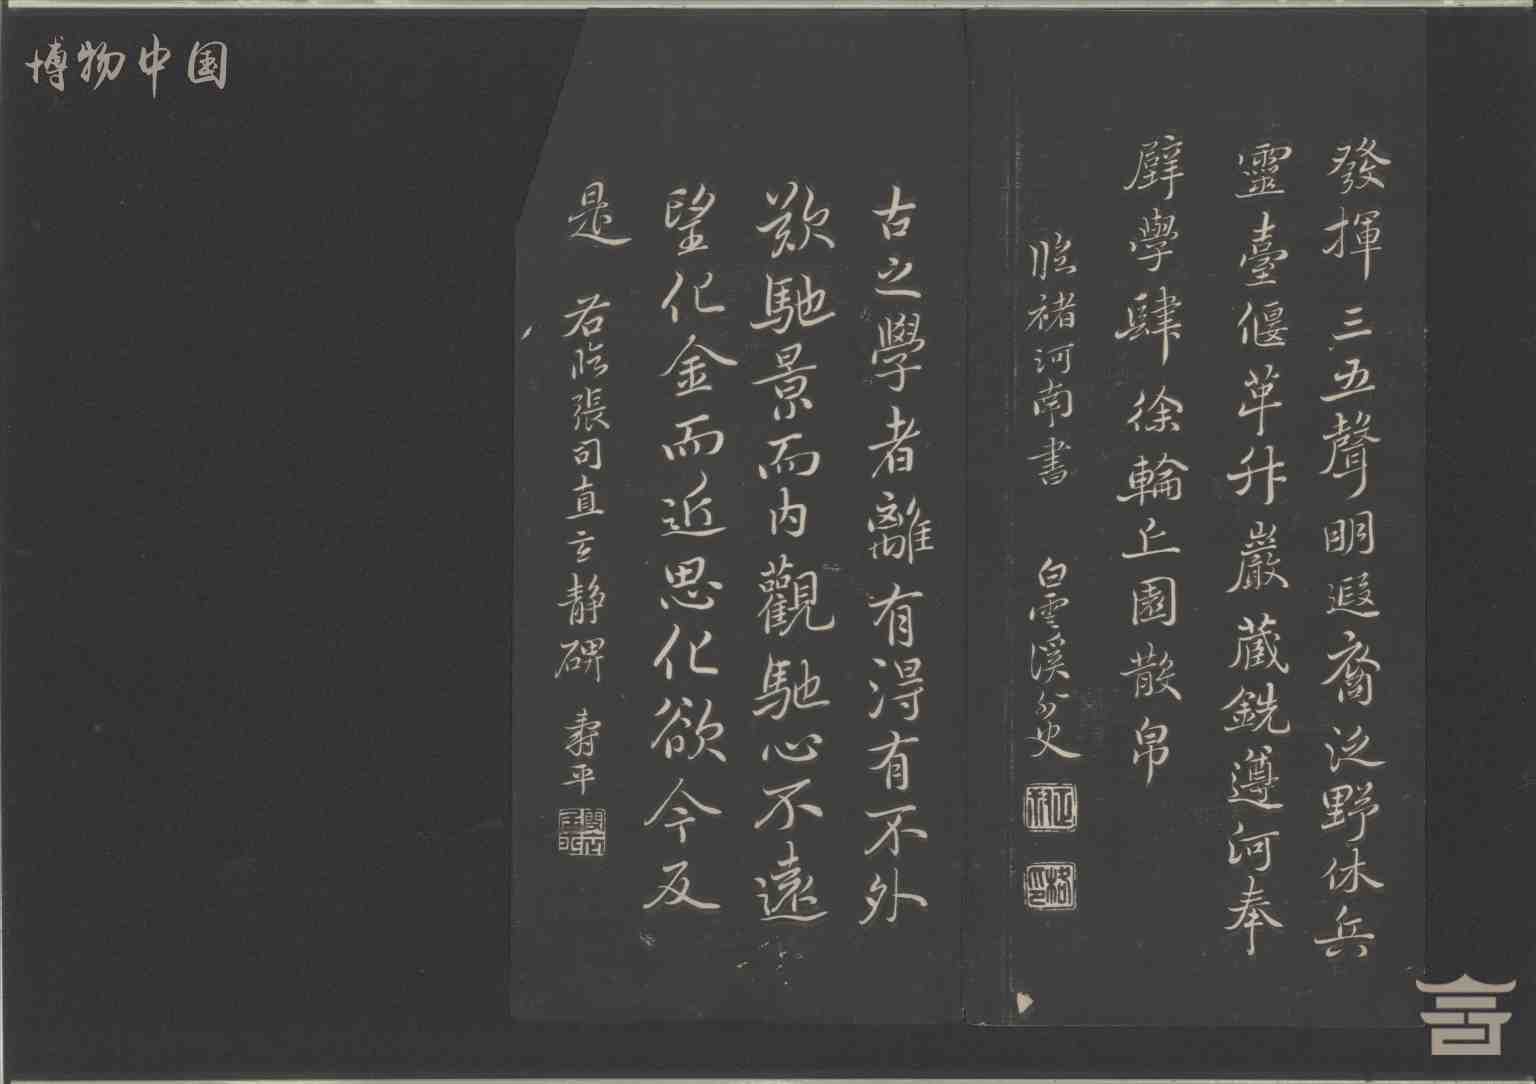 博物中国
發揮三五聲明遐裔泛野休兵
靈臺偃革升巖藏銑遵河奉
璧學肆徐輪上園散帛
臨褚河南書 白雲溪外史
古之學者離有得有不外
欺馳景而内觀馳心不遠
望化金而近思化欲今反
是 右臨張司直玄静碑 壽平